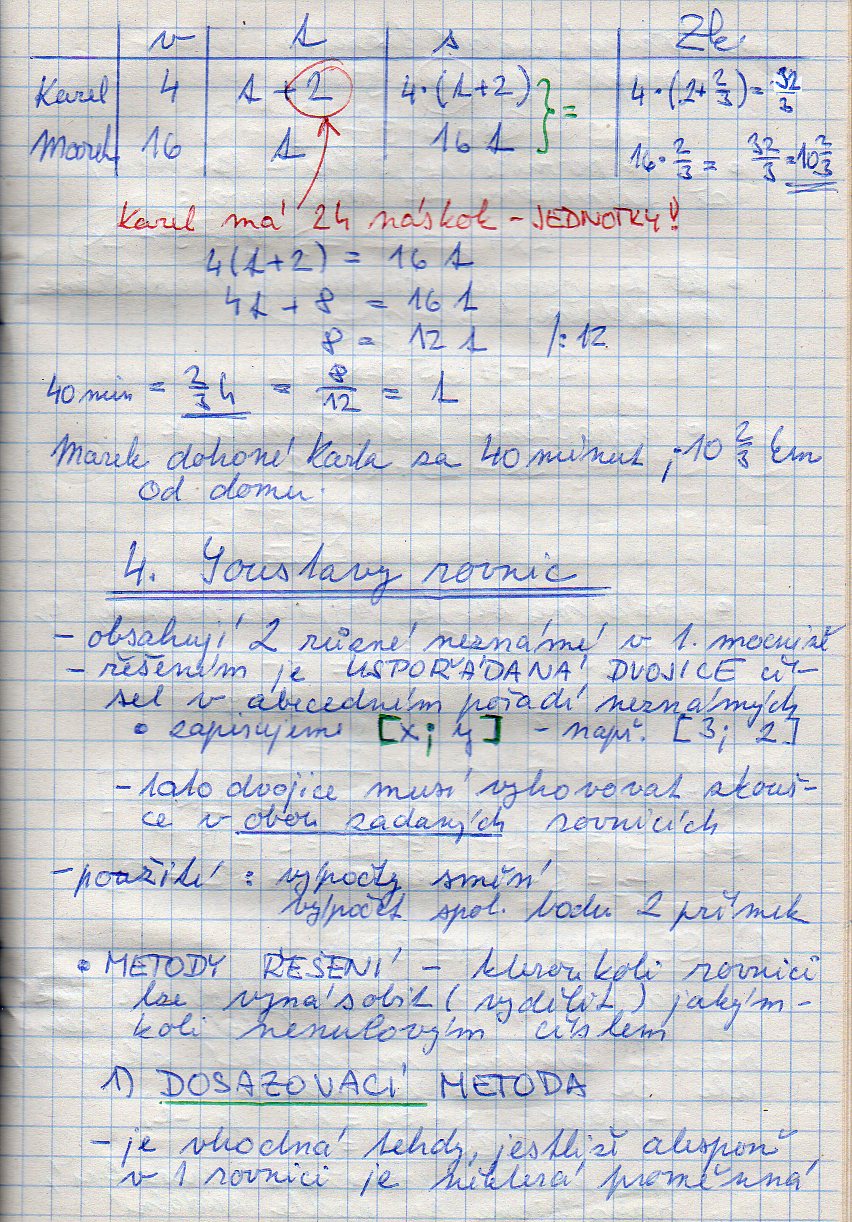 v t s Zk:
Karel 4 t + 2 4·(t+2) } = 4·(2+2/3) = 32/3
Marek 16 t 16 t 16·2/3 = 32/3 = 10 2/3
Karel má 2h náskok - JEDNOTKY!
4(t+2) = 16 t
4t + 8 = 16 t
8 = 12 t /:12
40 min = 2/3 h = 8/12 = t
Marek dohoní Karla za 40 minut, 10 2/3 km
od domu.
4. Soustavy rovnic
- obsahují 2 různé neznámé v 1. mocnině
- řešením je USPOŘÁDANÁ DVOJICE čí-
sel v abecedním pořadí neznámých
• zapisujeme [x; y] - např. [3; 2]
- tato dvojice musí vyhovovat zkouš-
ce v obou zadaných rovnicích
- použití : výpočty směsí
výpočet spol. bodu 2 přímek
• METODY ŘEŠENÍ - kteroukoli rovnici
lze vynásobit (vydělit) jakým-
koli nenulovým číslem
1) DOSAZOVACÍ METODA
- je vhodná tehdy, jestliže alespoň
v 1 rovnici je některá proměnná